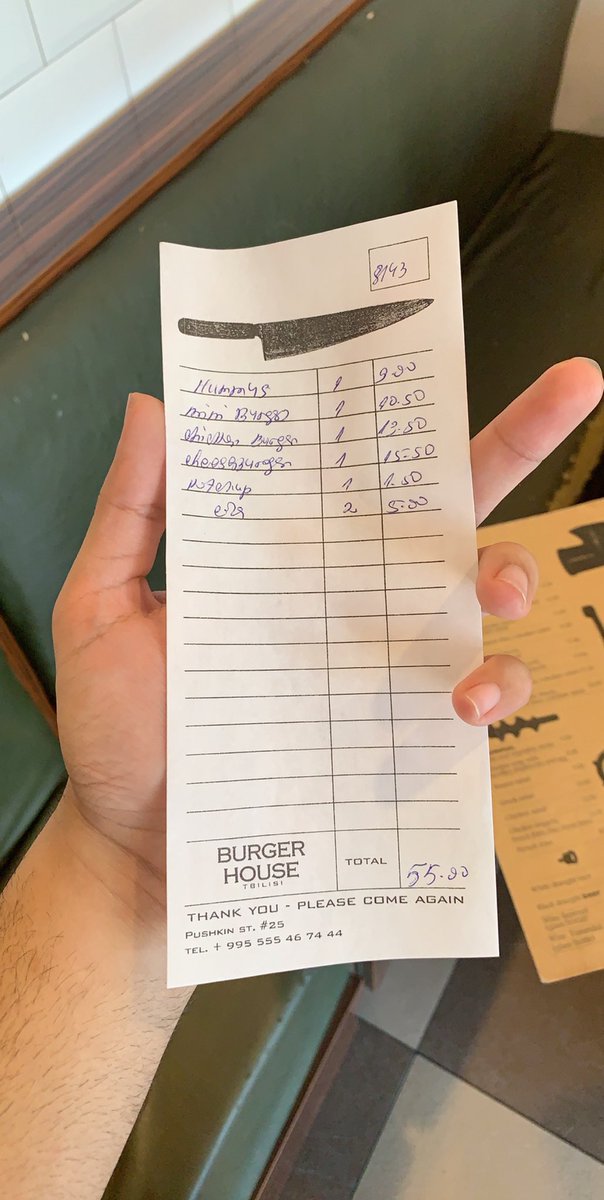 8143
Hummus 1 9.00
mini Burger 1 10.50
chicken Burger 1 13.50
cheeseburger 1 15.50
ketchup 1 1.50
2 5.00
BURGER
HOUSE
TBILISI
TOTAL 55.00
THANK YOU - PLEASE COME AGAIN
PUSHKIN ST. #25
TEL. + 995 555 46 74 44